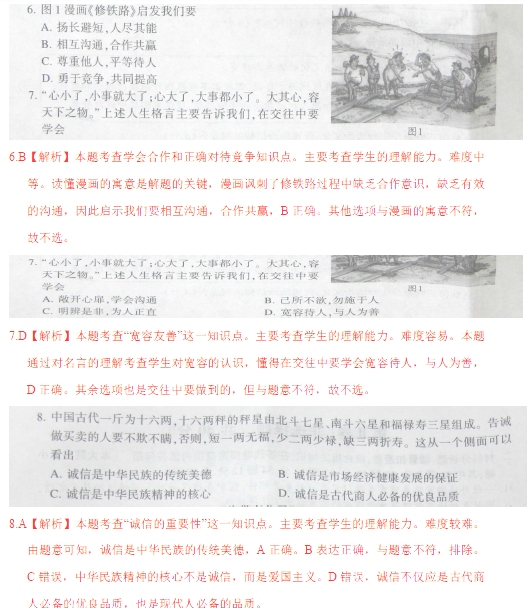 6. 图 1 漫画《修铁路》启发我们要
A. 扬长避短,人尽其能
B. 相互沟通,合作共赢
C. 尊重他人,平等待人
D. 勇于竞争,共同提高
7. “心小了,小事就大了;心大了,大事都小了。大其心,容
天下之物。”上述人生格言主要告诉我们,在交往中要
学会
图1
6.B【解析】本题考查学会合作和正确对待竞争知识点。主要考查学生的理解能力。难度中
等。读懂漫画的寓意是解题的关键，漫画讽刺了修铁路过程中缺乏合作意识，缺乏有效
的沟通，因此启示我们要相互沟通，合作共赢，B 正确。其他选项与漫画的寓意不符，
故不选。
7. “心小了,小事就大了;心大了,大事都小了。大其心,容
天下之物。”上述人生格言主要告诉我们,在交往中要
学会
图1
A. 敞开心扉,学会沟通 B. 己所不欲,勿施于人
C. 明辨是非,为人正直 D. 宽容待人,与人为善
7.D【解析】本题考查“宽容友善”这一知识点。主要考查学生的理解能力。难度容易。本题
通过对名言的理解考查学生对宽容的认识，懂得在交往中要学会宽容待人，与人为善，
D 正确。其余选项也是交往中要做到的，但与题意不符，故不选。
8. 中国古代一斤为十六两,十六两秤的秤星由北斗七星、南斗六星和福禄寿三星组成。告诫
做买卖的人要不欺不瞒,否则,短一两无福,少二两少禄,缺三两折寿。这从一个侧面可以
看出
A. 诚信是中华民族的传统美德 B. 诚信是市场经济健康发展的保证
C. 诚信是中华民族精神的核心 D. 诚信是古代商人必备的优良品质
8.A【解析】本题考查“诚信的重要性”这一知识点。主要考查学生的理解能力。难度较难。
由题意可知，诚信是中华民族的传统美德，A 正确。B 表达正确，与题意不符，排除。
C 错误，中华民族精神的核心不是诚信，而是爱国主义。D 错误，诚信不仅应是古代商
人必备的优良品质，也是现代人必备的品质。